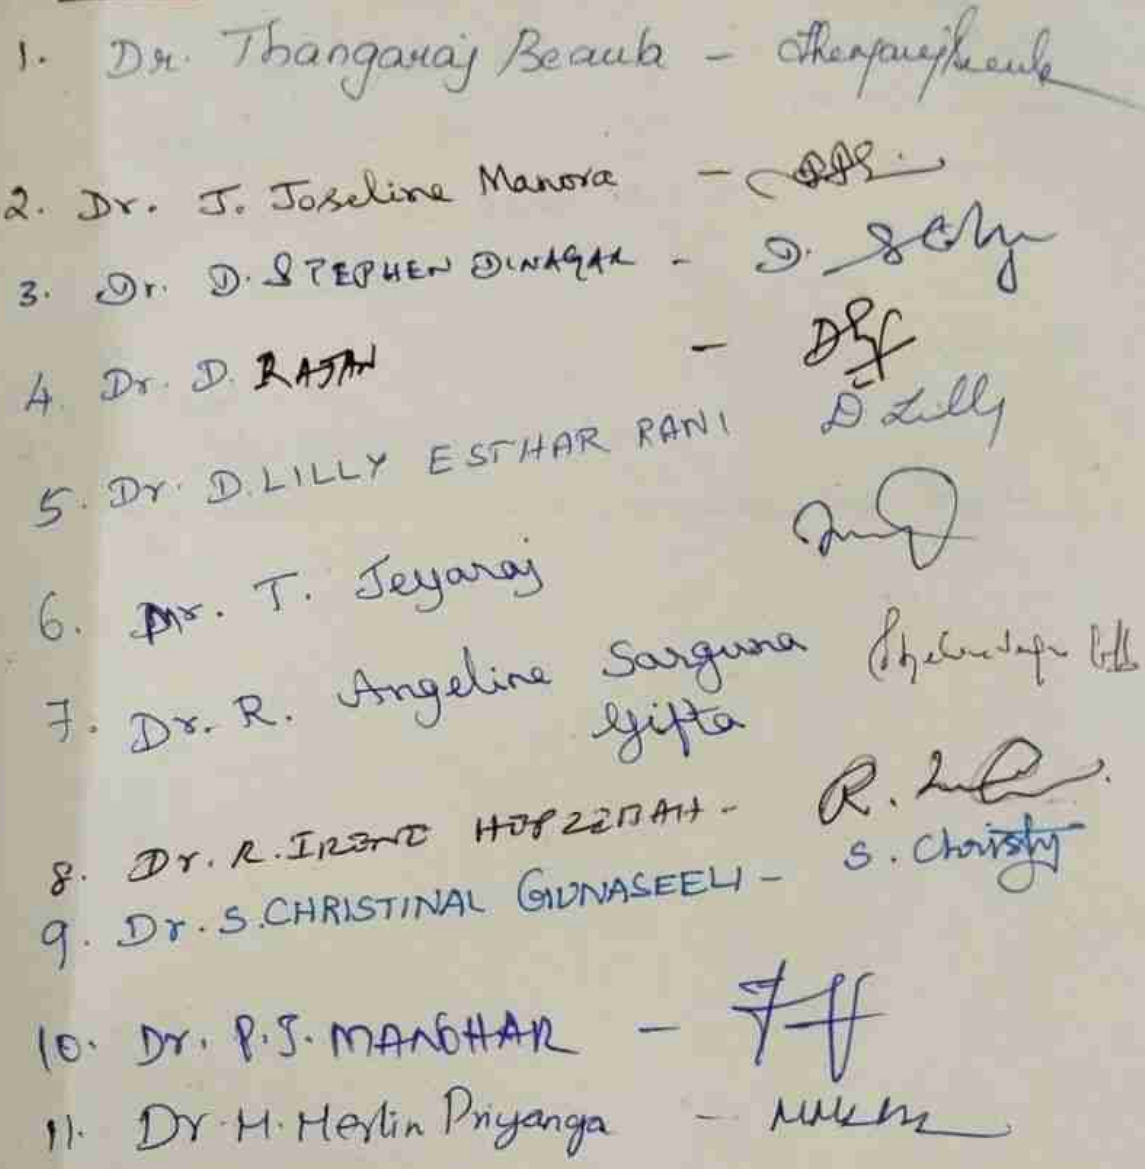 1. Dr. Thangaraj Beaula -
2. Dr. J. Joseline Manora -
3. Dr. D. STEPHEN DINAGAR - D.
4. Dr. D. RAJAN -
5. Dr. D. LILLY ESTHAR RANI D. Lilly
6. Mr. T. Jeyaraj
7. Dr. R. Angeline Sarguna
Gifta
8. Dr. R. IRENE HEPZIBAH - R.
9. Dr. S. CHRISTINAL GUNASEELI - S. Christy
10. Dr. P. J. MANOHAR -
11. Dr. H. Merlin Priyanga -